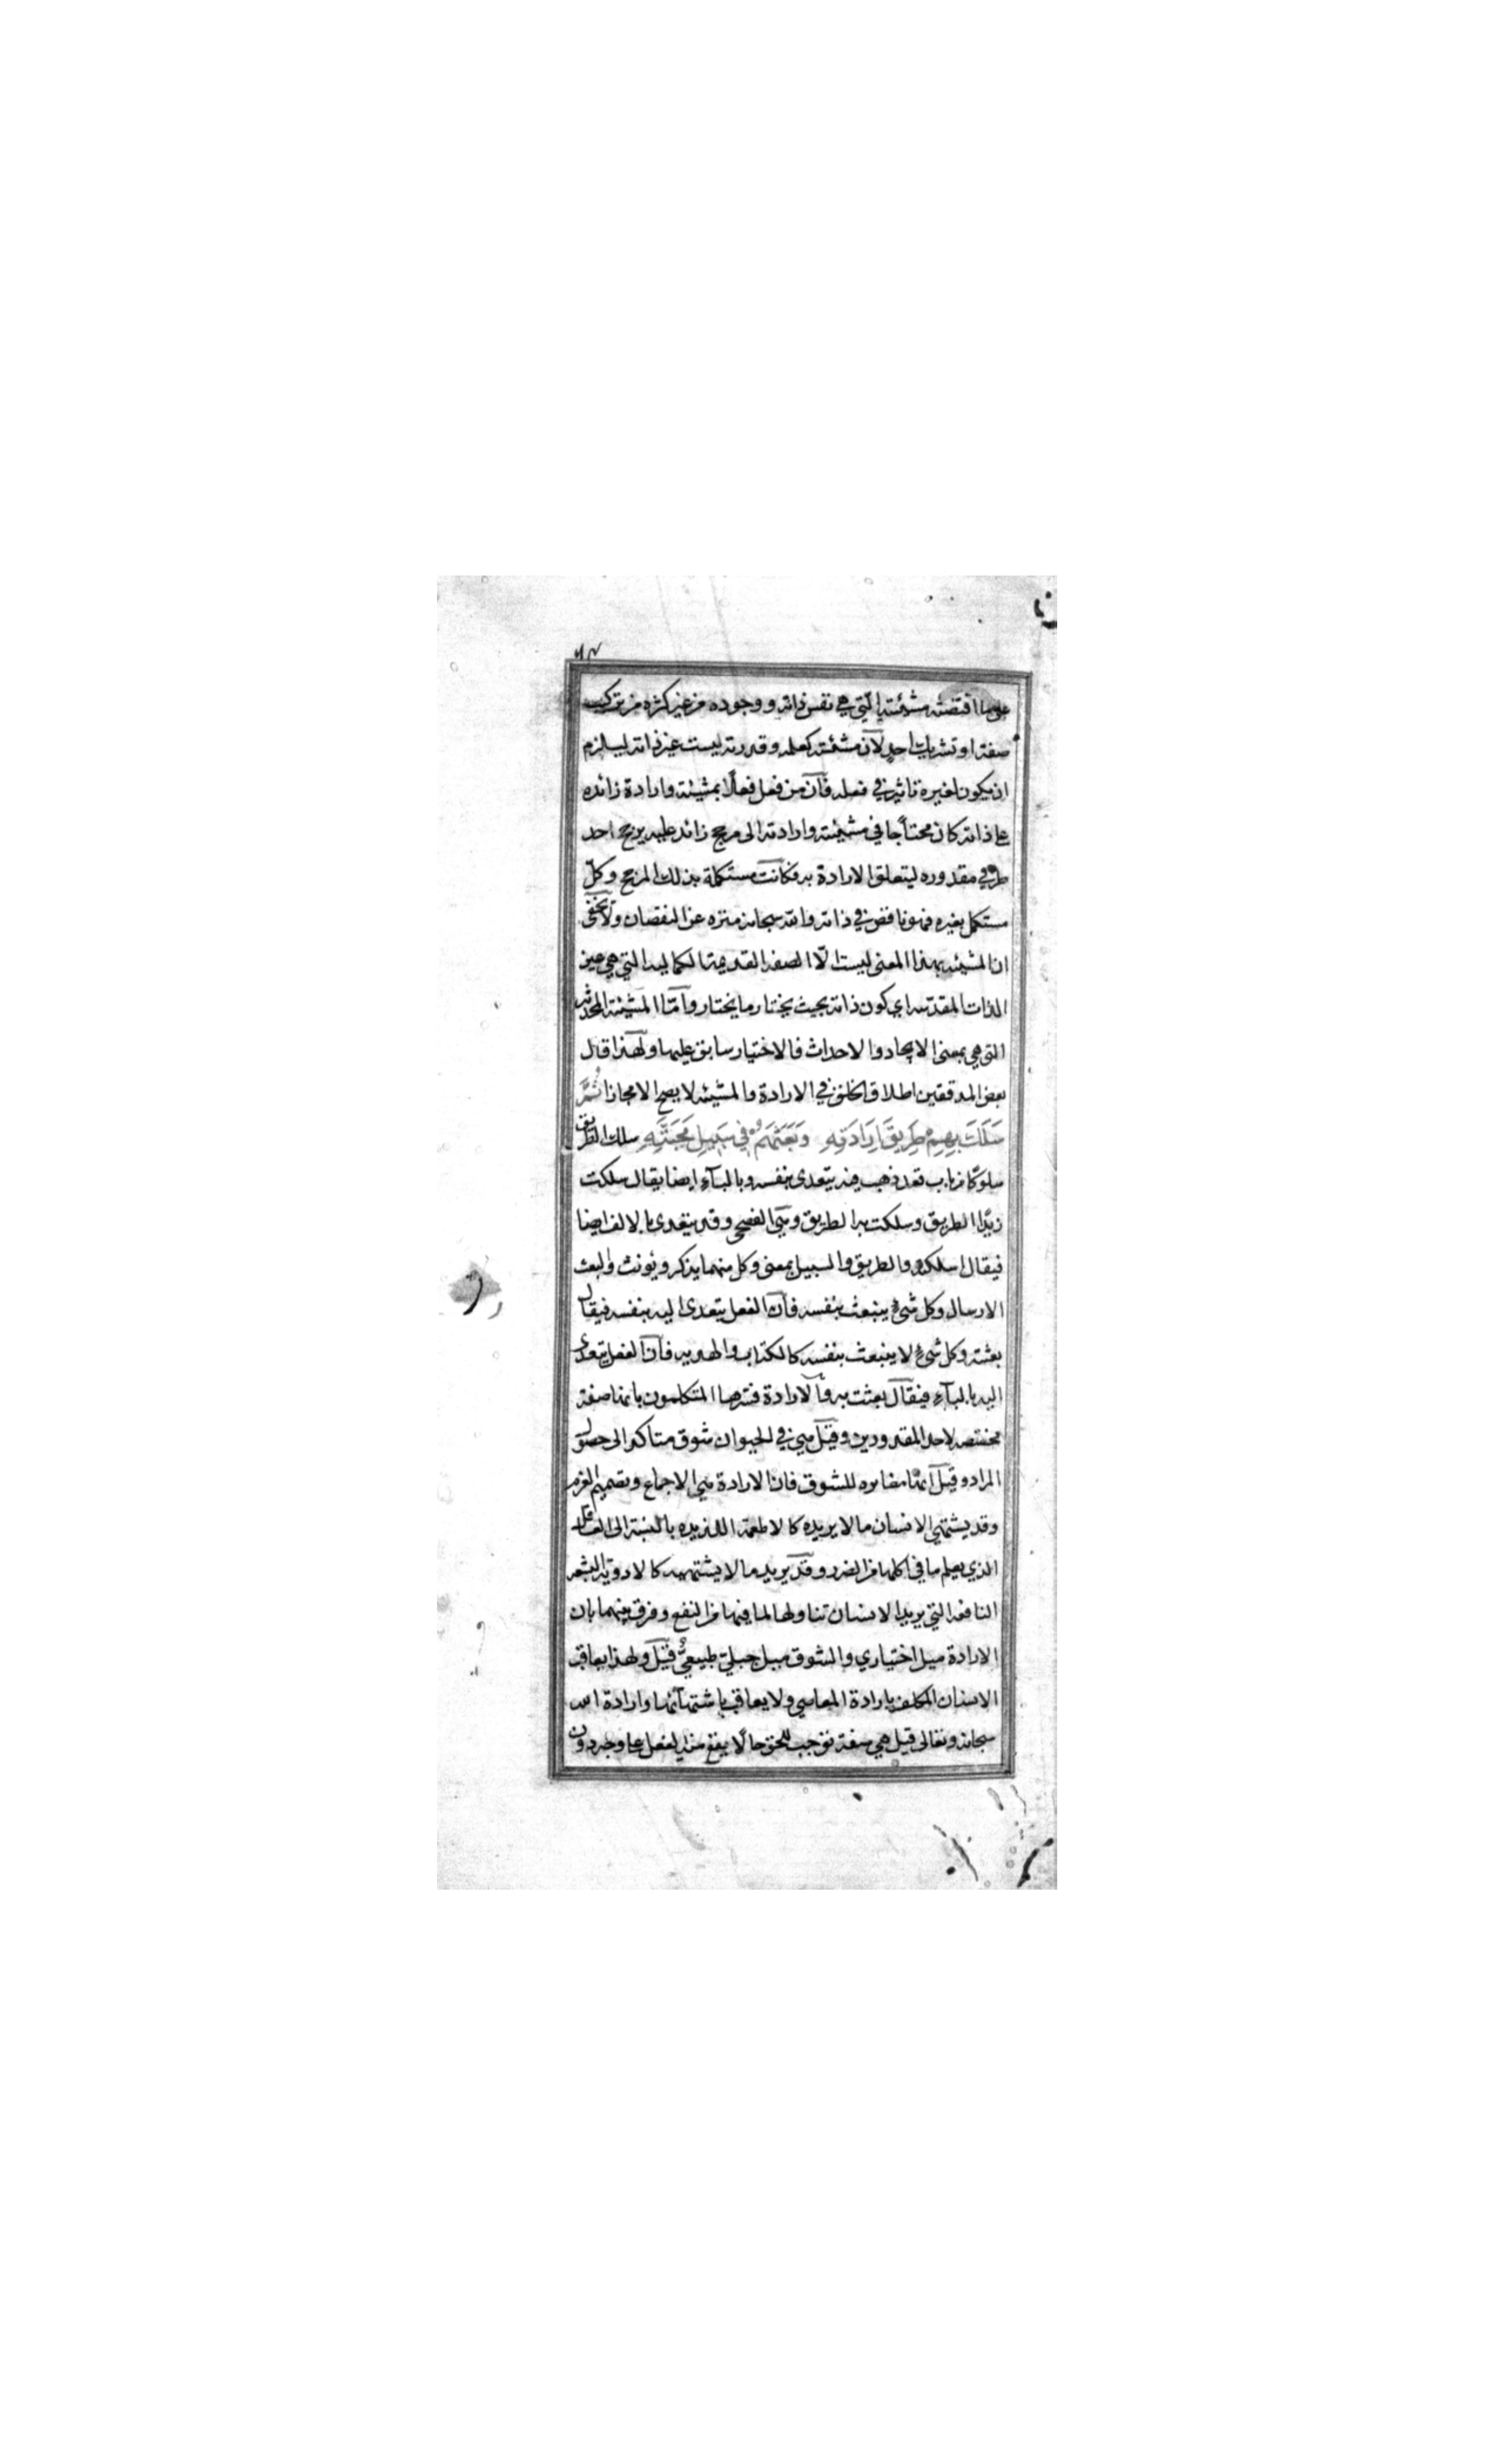 ٦٣
على ما اقتضته مشيئته التي هي نفس ذاته ووجوده من غير كثرة من تركيب
صفة او تشريك احد لأن مشيئته كعلمه وقدرته ليست غير ذاته ليلزم
ان يكون لغيره تاثير في فعله فأن من فعل فعلا بمشيئته وارادة زائده
على ذاته كان محتاجا في مشيئته وارادته الى مرجح زائد عليه يرجح احد
طرفي مقدوره ليتعلق الارادة به فكانت مستكملة بذلك المرجح وكلّ
مستكمل بغيره فهو ناقص في ذاته والله سبحانه منزه عن النقصان ولا يخفى
ان المشيئه بهذا المعنى ليست الّا الصفه القديمة الكماليه التي هي عين
الذات المقدسه اي كون ذاته بحيث يختار ما يختار وأمّا المشيئة المحدثه
التي هي بمعنى الايجاد والاحداث فالاختيار سابق عليها ولهذا قال
بعض المدققين اطلاق الخلق في الارادة والمشيئه لا يصح الا مجازا ثُمَّ
سَلَكَ بِهِمْ طَرِيقَ اِرَادَتِهِ وَبَعَثَهُمْ فِي سَبِيلِ مَحَبَّتِهِ سلك الطريق
سلوكا من باب قعد ذهب فيه يتعدى بنفسه وبالبآء ايضا يقال سلكت
زيدًا الطريق وسلكت به الطريق وهي الفصحى وقد يتعدى بالالف ايضا
فيقال اسلكته والطريق والسبيل بمعنى وكل منهما يذكر ويؤنث والبعث
الارسال وكل شئ ينبعث بنفسه فأن الفعل يتعدى اليه بنفسه فيقال
بعثته وكل شئ لا ينبعث بنفسه كالكتاب والهديه فأن الفعل يتعدى
اليه بالبآء فيقال بعثت به والارادة فسّرها المتكلمون بانها صفة
مخصصه لاحد المقدورين وقيل هي في الحيوان شوق متاكد الى حصول
المراد وقيل انّها مغايره للشوق فان الارادة هي الاجماع وتصميم العزم
وقد يشتهي الانسان ما لا يريده كالاطعمة اللذيذه بالنسبة الى العاقل
الذي يعلم ما في اكلها من الضرر وقد يريد ما لا يشتهيه كالادوية البشعه
النافعه التي يريد الانسان تناولها لما فيها من النفع وفرق بينهما بان
الارادة ميل اختياري والشوق ميل جبلي طبيعيّ قيل ولهذا يعاقب
الانسان المكلف بارادة المعاصي ولا يعاقب باشتهآئها وارادة الله
سبحانه وتعالى قيل هي صفة توجب للحق حالا يقع منه الفعل على وجه دون